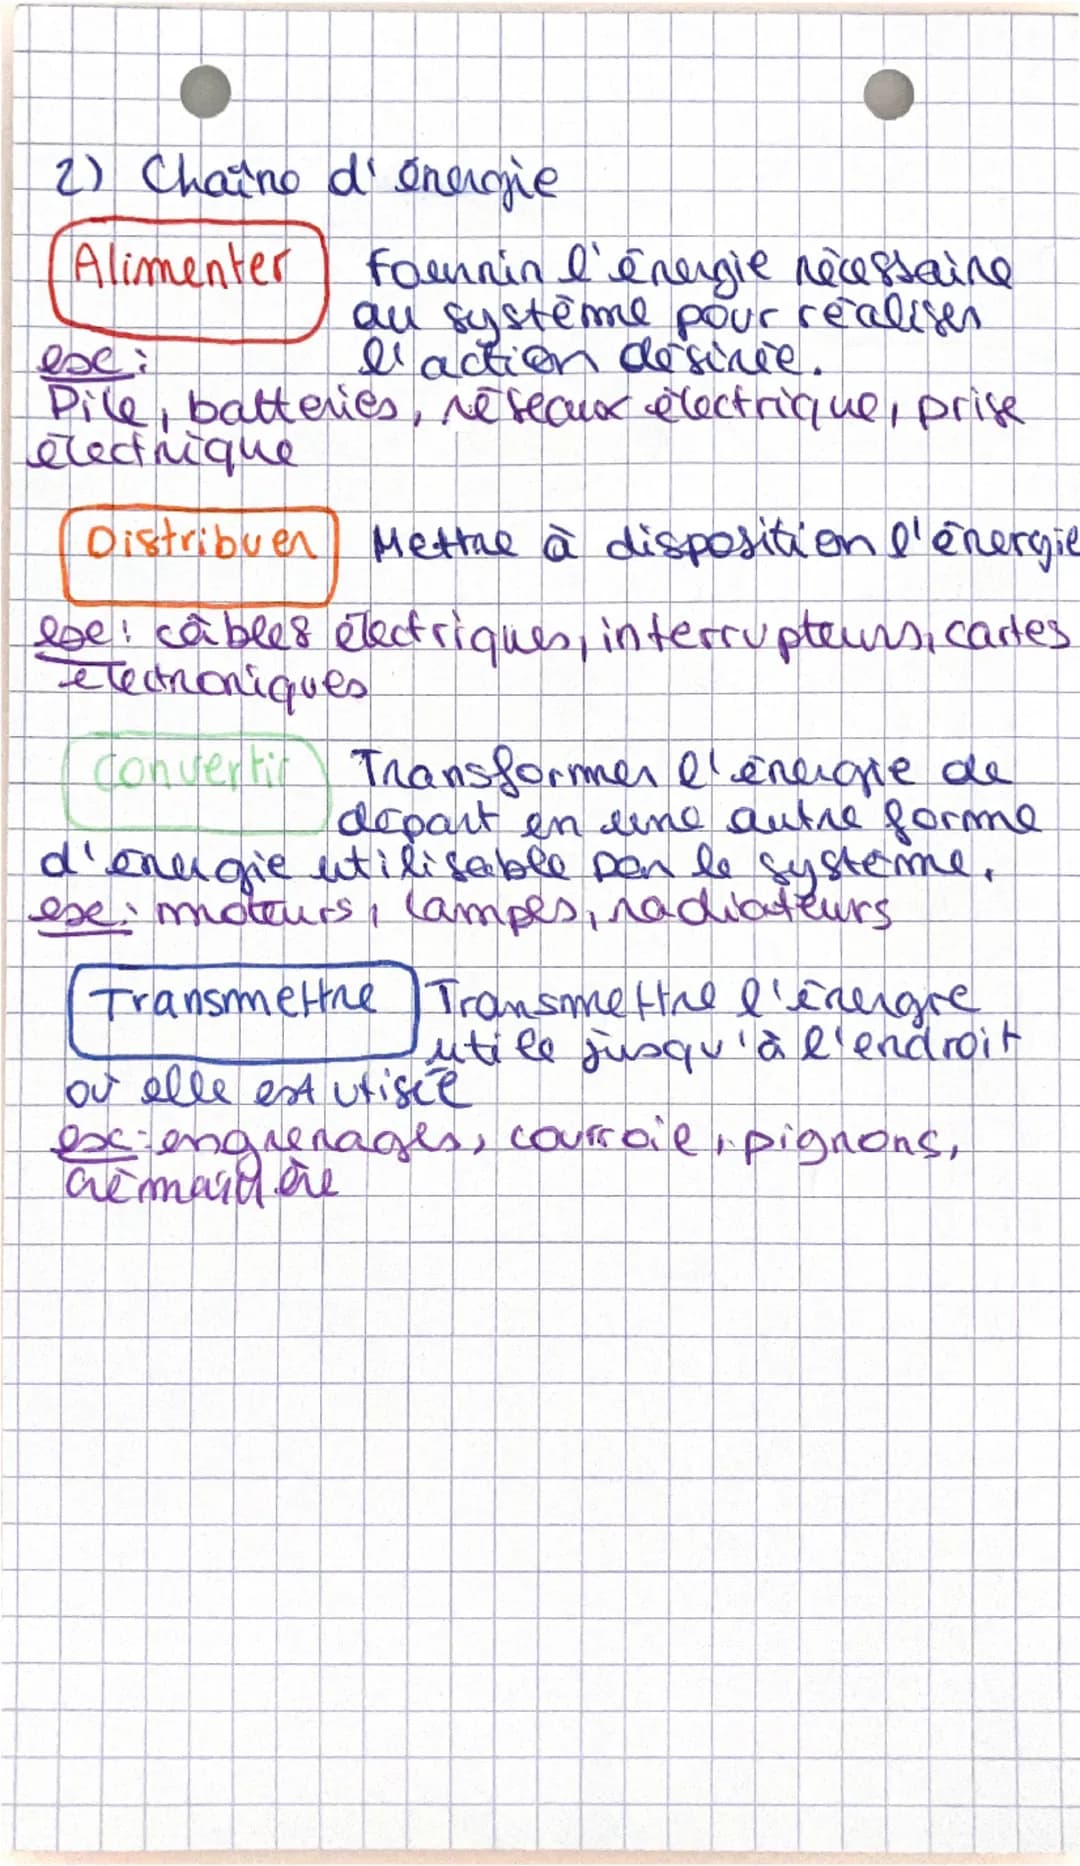 2) Chaîne d'énergie
Alimenter Fournir l'énergie nécessaire
au système pour réaliser
l'action désirée.
ex:
Pile, batteries, réseaux électrique, prise
électrique
Distribuer Mettre à disposition l'énergie
ex: câbles électriques, interrupteurs, cartes
électroniques
Convertir Transformer l'énergie de
départ en une autre forme
d'énergie utilisable par le système.
ex: moteurs, lampes, radiateurs
Transmettre Transmettre l'énergie
utile jusqu'à l'endroit
où elle est utisée
ex: engrenages, courroie, pignons,
crémaillère